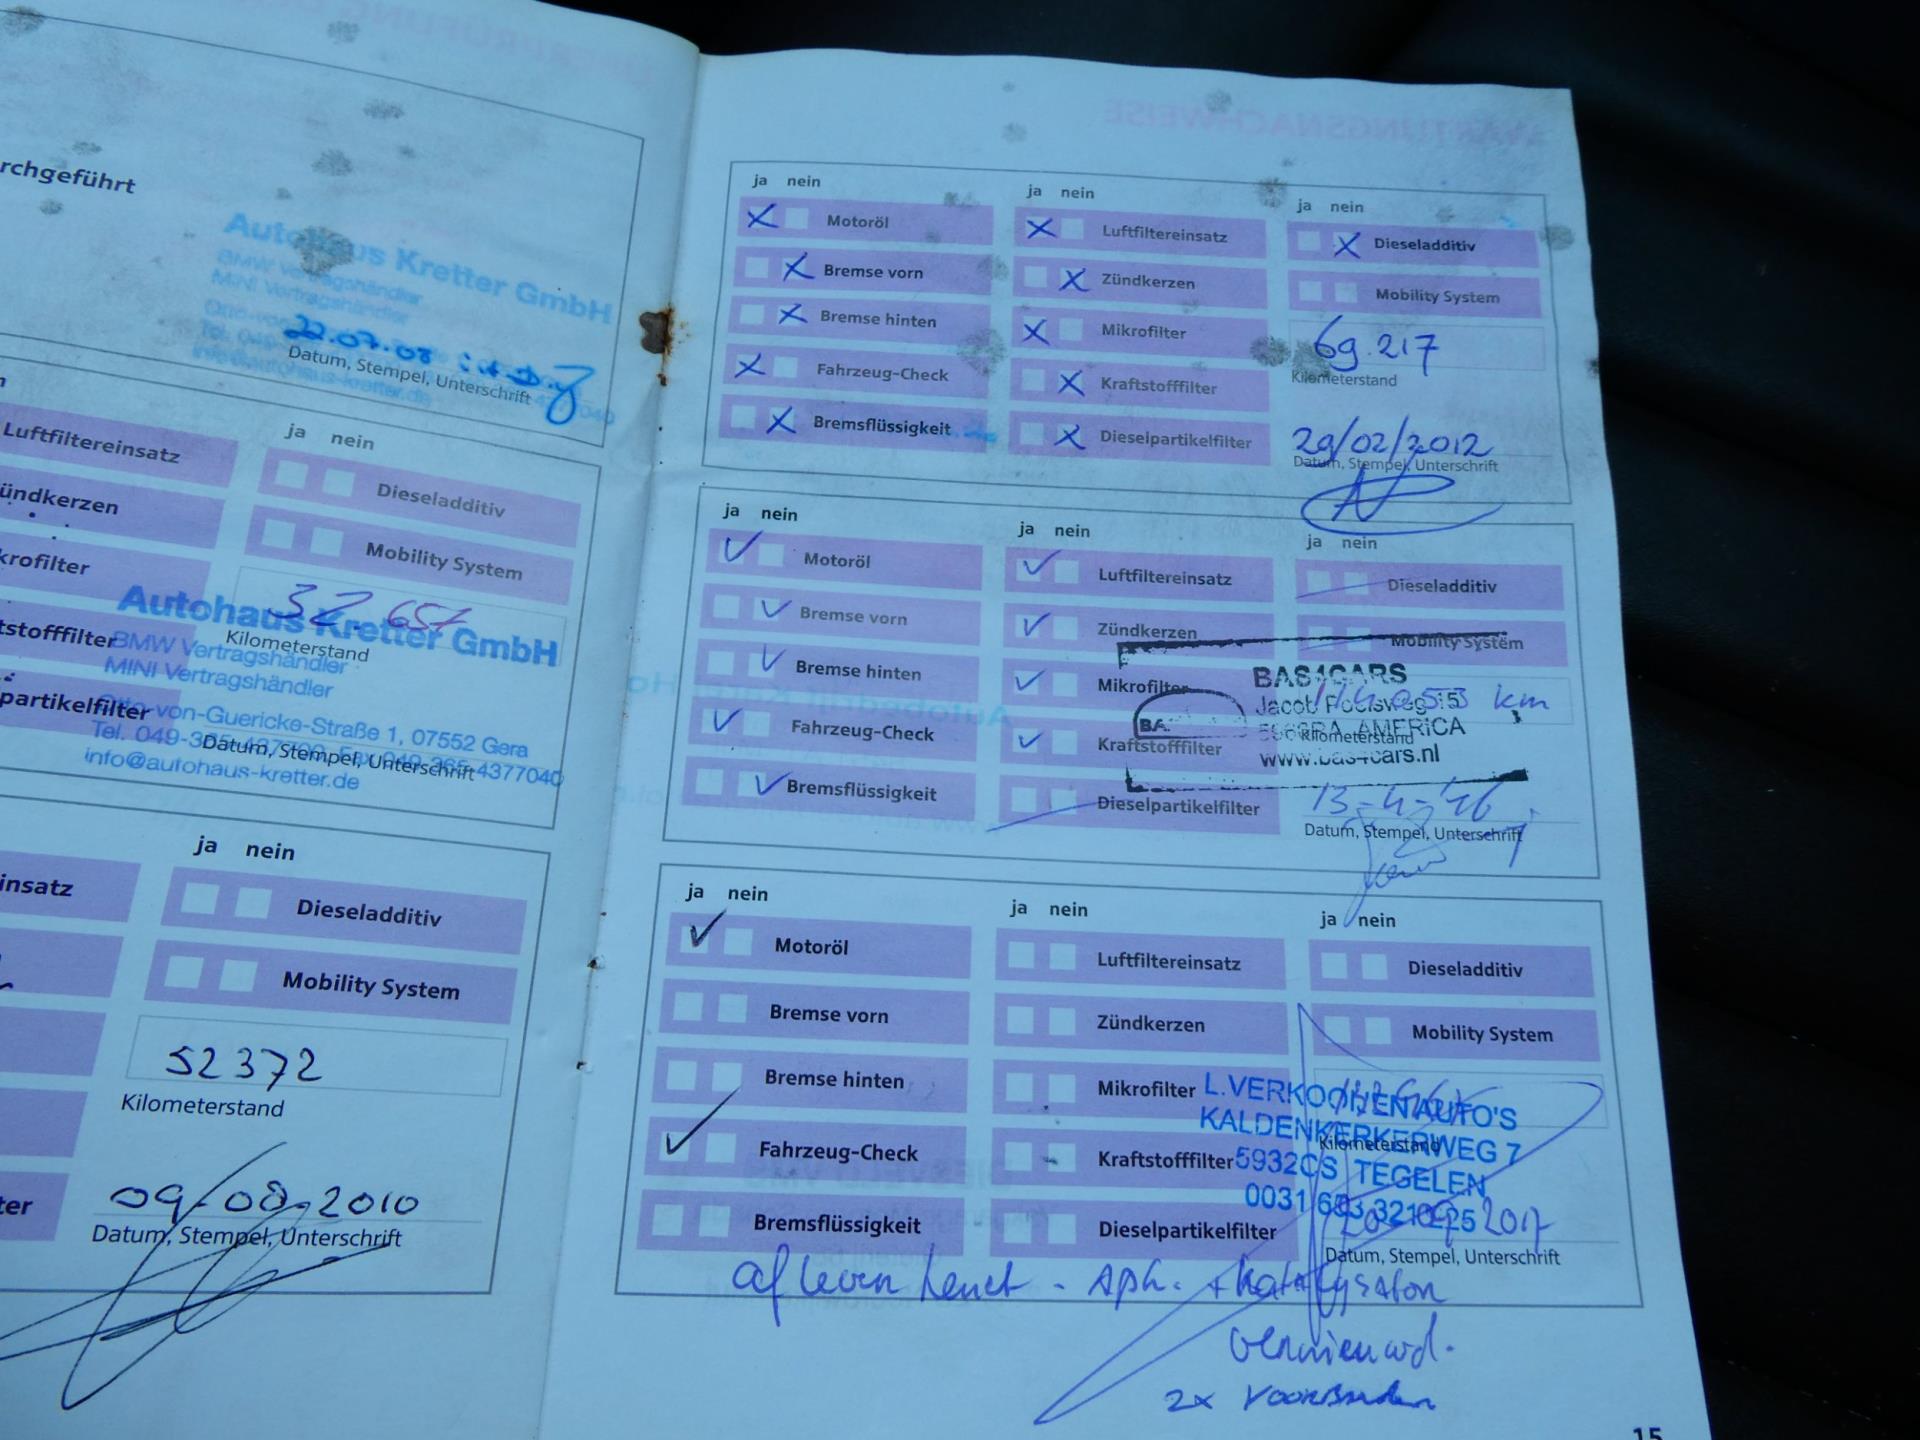 rchgeführt
Autohaus Kretter GmbH
BMW Vertragshändler
MINI Vertragshändler
22.07.08
Datum, Stempel, Unterschrift
info@autohaus-kretter.de
ja nein
Luftfiltereinsatz
Dieseladditiv
ündkerzen
Mobility System
krofilter
32.657
Autohaus Kretter GmbH
Kilometerstand
tstofffilter
BMW Vertragshändler
MINI Vertragshändler
partikelfilter
Otto-von-Guericke-Straße 1, 07552 Gera
Datum, Stempel, Unterschrift
info@autohaus-kretter.de
ja nein
insatz
Dieseladditiv
Mobility System
52372
Kilometerstand
ter
09/08-2010
Datum, Stempel, Unterschrift
WARTUNGSNACHWEISE
ja nein
ja nein
ja nein
Motoröl
Luftfiltereinsatz
Dieseladditiv
Bremse vorn
Zündkerzen
Mobility System
Bremse hinten
Mikrofilter
69.217
Kilometerstand
Fahrzeug-Check
Kraftstofffilter
Bremsflüssigkeit
Dieselpartikelfilter
29/02/2012
Datum, Stempel, Unterschrift
ja nein
ja nein
ja nein
Motoröl
Luftfiltereinsatz
Dieseladditiv
Bremse vorn
Zündkerzen
Mobility System
Bremse hinten
Mikrofilter
BAS4CARS
km
Jacob
AMERICA
Kilometerstand
www.bas4cars.nl
Fahrzeug-Check
Kraftstofffilter
Bremsflüssigkeit
Dieselpartikelfilter
13-4-'16
Datum, Stempel, Unterschrift
ja nein
ja nein
ja nein
Motoröl
Luftfiltereinsatz
Dieseladditiv
Bremse vorn
Zündkerzen
Mobility System
Bremse hinten
Mikrofilter
L.VERKOOIJEN AUTO'S
KALDENKERKERWEG 7
Kilometerstand
5932CS TEGELEN
0031
Fahrzeug-Check
Kraftstofffilter
Bremsflüssigkeit
Dieselpartikelfilter
2017
Datum, Stempel, Unterschrift
afleveren
2x
15